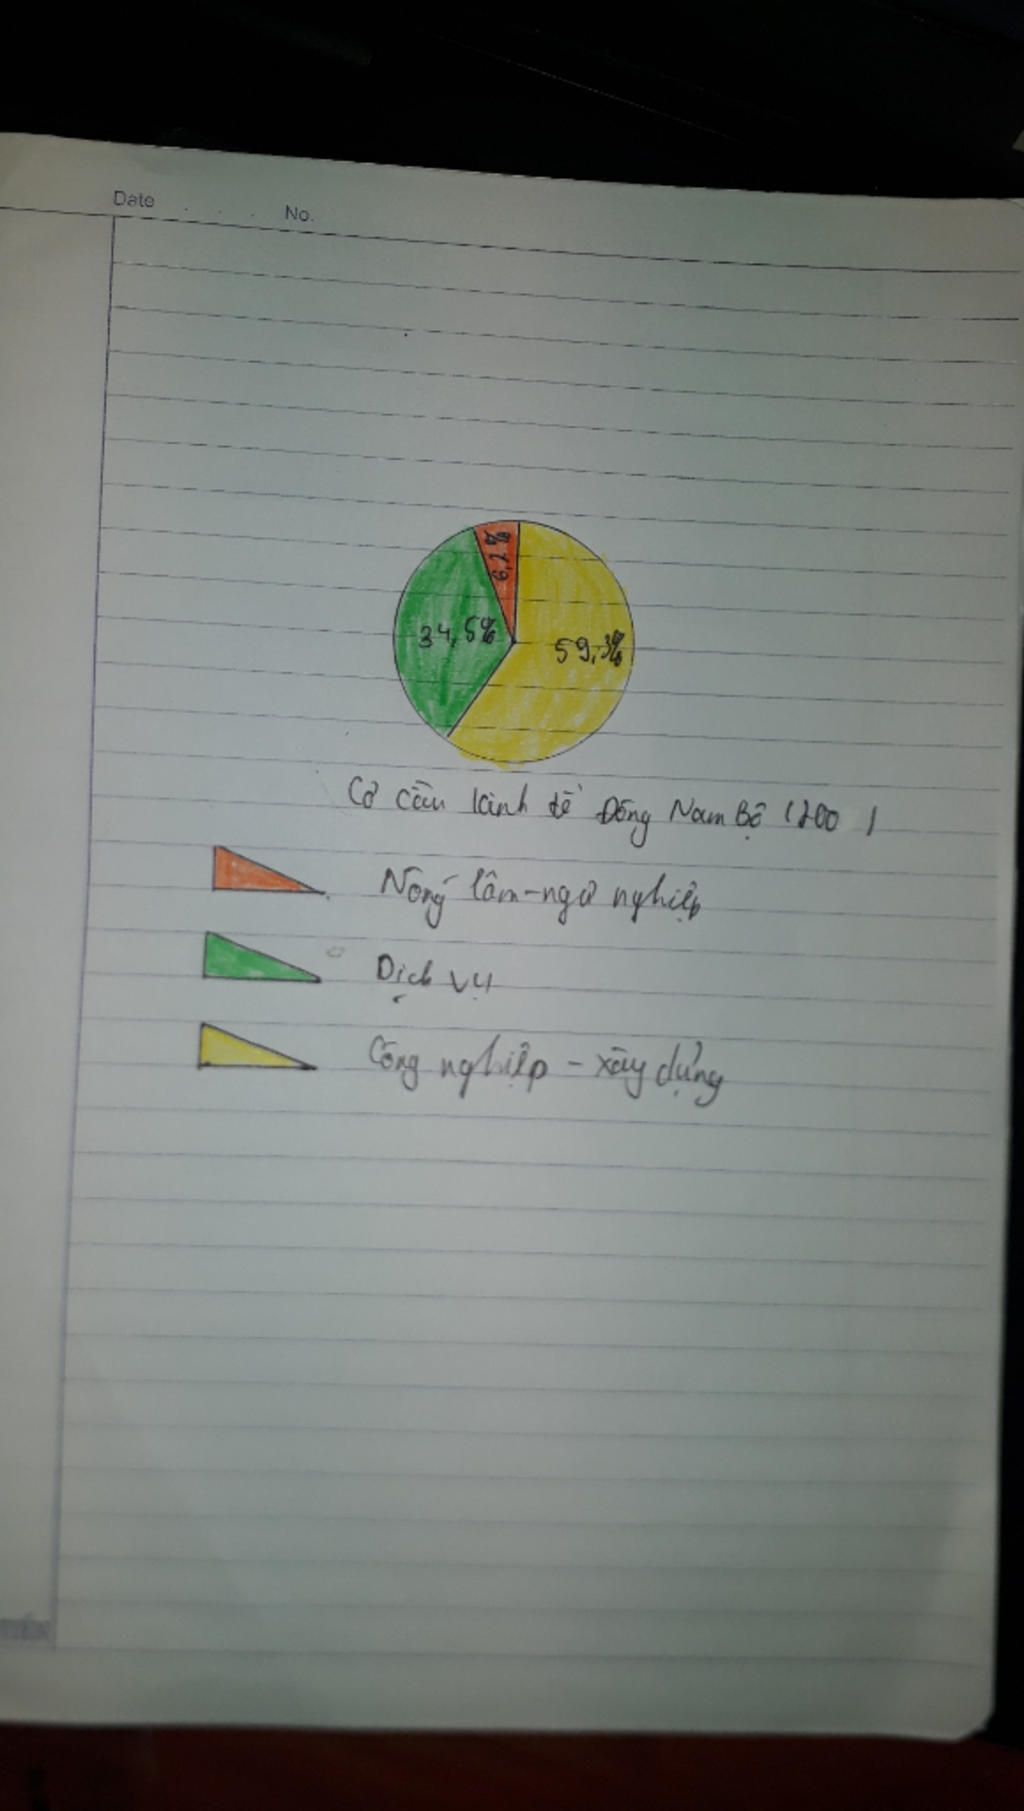 Date . . . No.
6,2%
34,5%
59,3%
Cơ cấu kinh tế Đông Nam Bộ (200 )
Nông lâm-ngư nghiệp
Dịch vụ
Công nghiệp - xây dựng